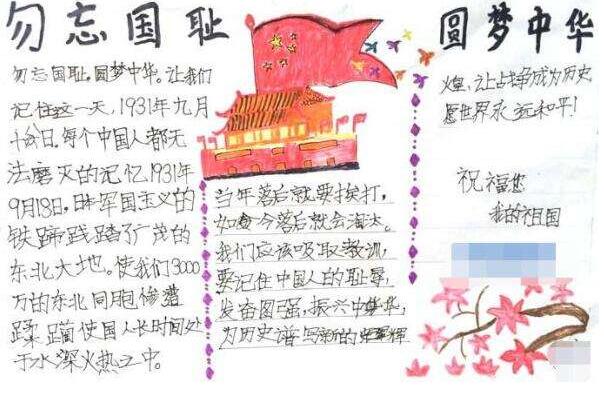 勿忘国耻
圆梦中华
勿忘国耻,圆梦中华。让我们
记住这一天,1931年九月
十八日,每个中国人都无
法磨灭的记忆,1931年
9月18日,日本军国主义的
铁蹄践踏了广茂的
东北大地。使我们3000
万的东北同胞惨遭
蹂躏使国人长时间处
于水深火热之中。
当年落后就要挨打,
如今落后就会淘汰。
我们应该吸取教训,
要记住中国人的耻辱,
发奋图强,振兴中华,
为历史谱写新的辉
煌,让战争成为历史
愿世界永远和平!
祝福您
我的祖国